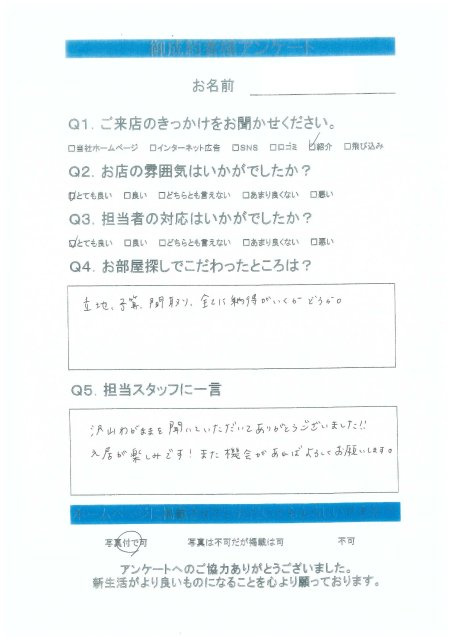 御成約者様アンケート
お名前
Q1. ご来店のきっかけをお聞かせください。
□当社ホームページ □インターネット広告 □SNS □口コミ ☑紹介 □飛び込み
Q2. お店の雰囲気はいかがでしたか?
☑とても良い □良い □どちらとも言えない □あまり良くない □悪い
Q3. 担当者の対応はいかがでしたか?
☑とても良い □良い □どちらとも言えない □あまり良くない □悪い
Q4. お部屋探しでこだわったところは?
立地、予算、間取り、全てに納得がいくかどうか。
Q5. 担当スタッフに一言
沢山わがままを聞いていただいてありがとうございました!!
入居が楽しみです!また機会があればよろしくお願いします。
写真付で可 写真は不可だが掲載は可 不可
アンケートへのご協力ありがとうございました。
新生活がより良いものになることを心より願っております。